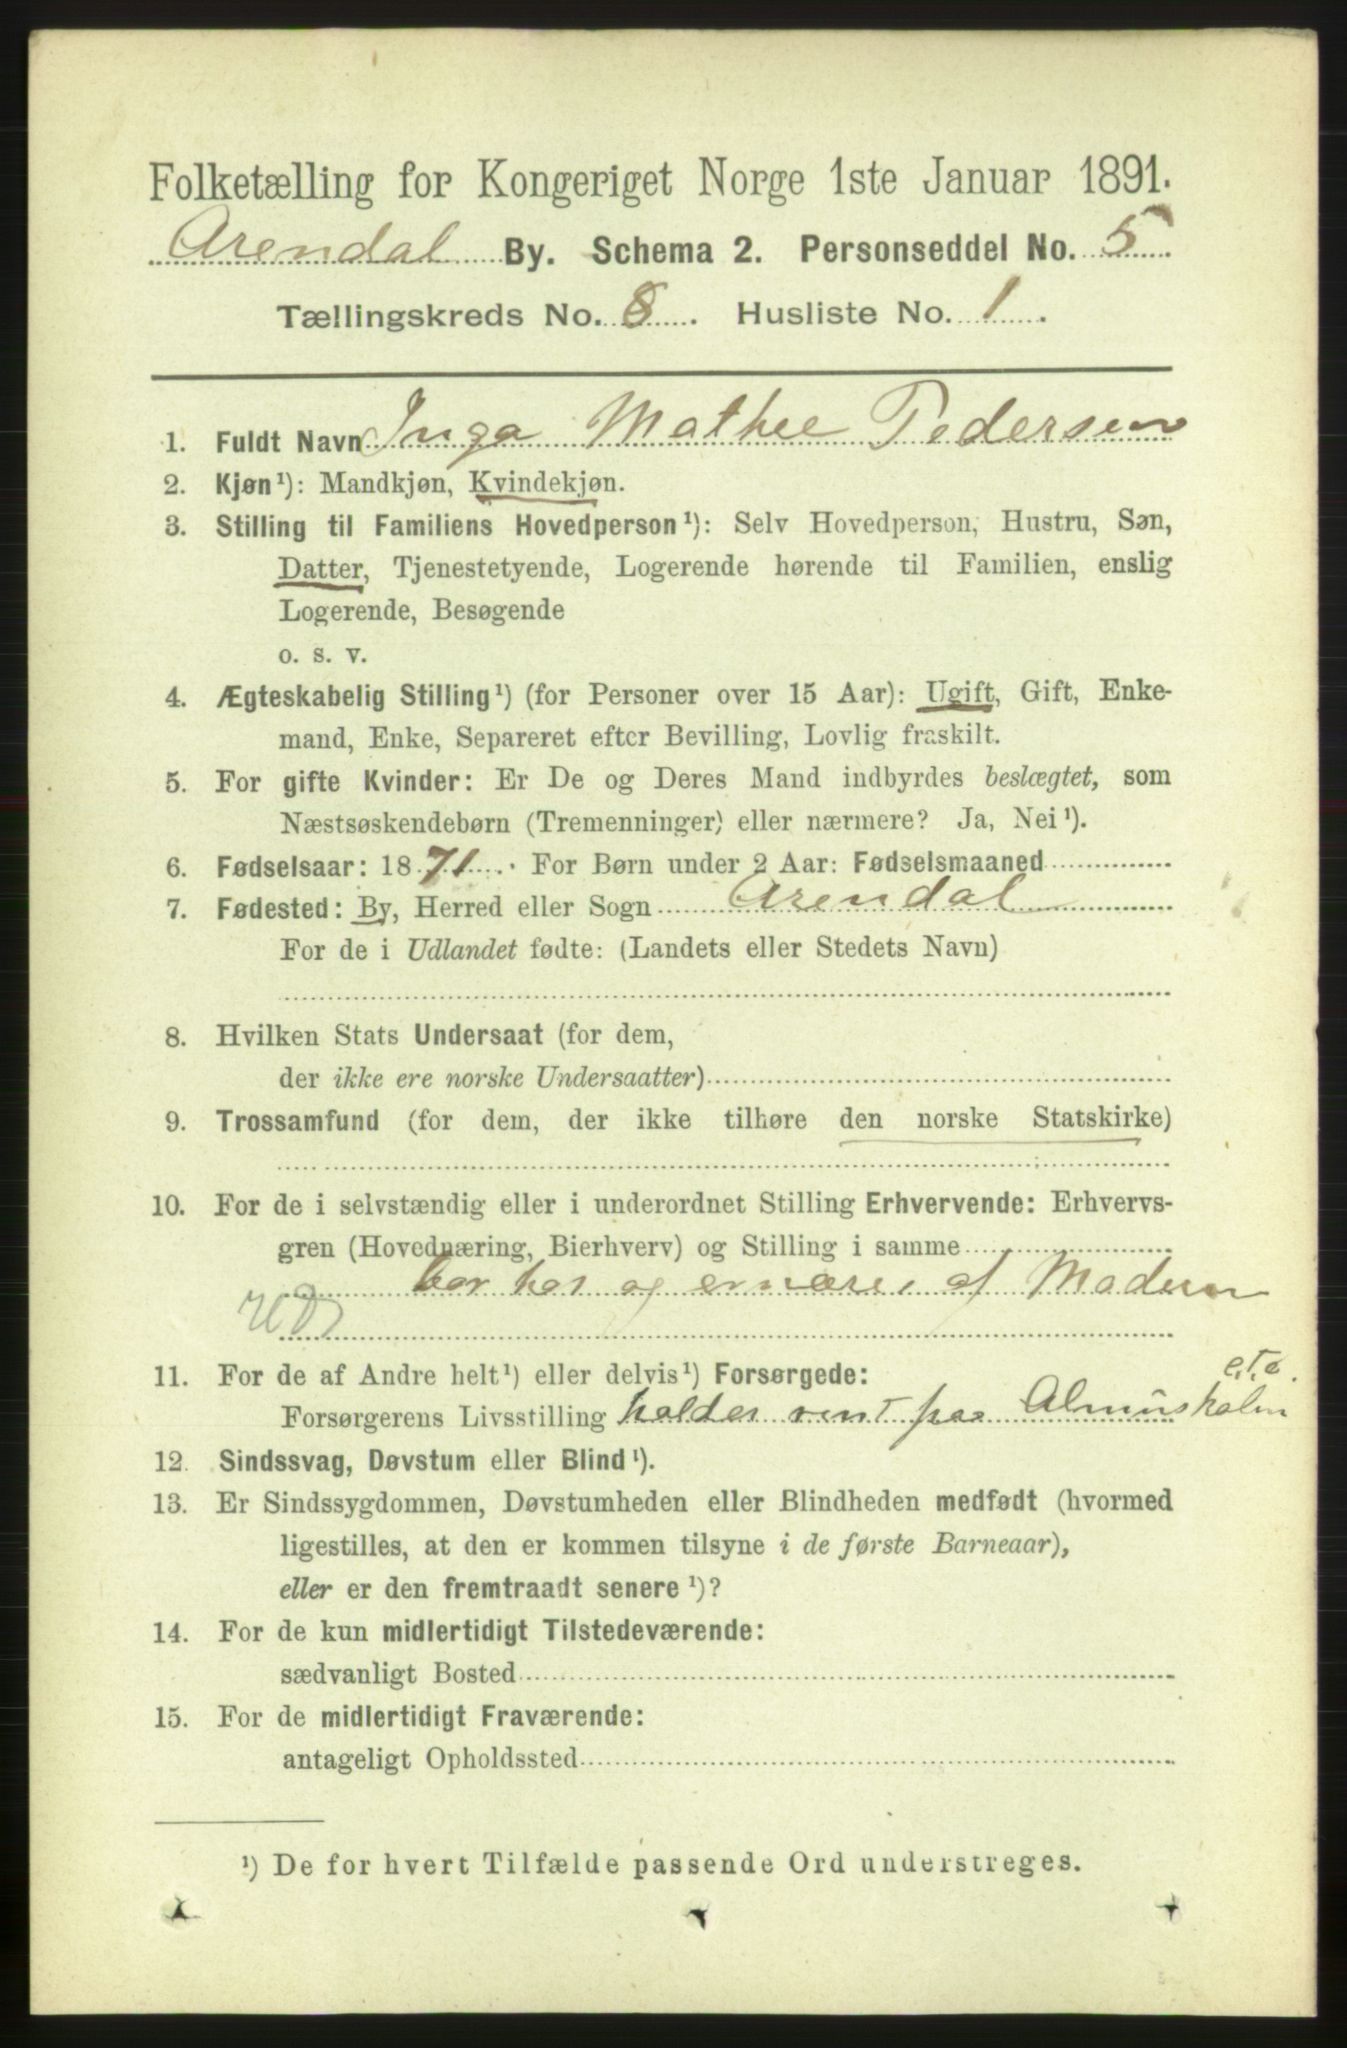 Folketælling for Kongeriget Norge 1ste Januar 1891.
Arendal By. Schema 2. Personseddel No. 5.
Tællingskreds No. 8. Husliste No. 1.
1. Fuldt Navn Inga Mathee Pedersen
2. Kjøn¹): Mandkjøn, Kvindekjøn.
3. Stilling til Familiens Hovedperson¹): Selv Hovedperson, Hustru, Søn,
Datter, Tjenestetyende, Logerende hørende til Familien, enslig
Logerende, Besøgende
o. s. v.
4. Ægteskabelig Stilling¹) (for Personer over 15 Aar): Ugift, Gift, Enke-
mand, Enke, Separeret efter Bevilling, Lovlig fraskilt.
5. For gifte Kvinder: Er De og Deres Mand indbyrdes beslægtet, som
Næstsøskendebørn (Tremenninger) eller nærmere? Ja, Nei¹).
6. Fødselsaar: 1871. For Børn under 2 Aar: Fødselsmaaned
7. Fødested: By, Herred eller Sogn Arendal
For de i Udlandet fødte: (Landets eller Stedets Navn)
8. Hvilken Stats Undersaat (for dem,
der ikke ere norske Undersaatter)
9. Trossamfund (for dem, der ikke tilhøre den norske Statskirke)
10. For de i selvstændig eller i underordnet Stilling Erhvervende: Erhvervs-
gren (Hovednæring, Bierhverv) og Stilling i samme
bor hos og ernæres af Moderen
11. For de af Andre helt¹) eller delvis¹) Forsørgede:
etc.
Forsørgerens Livsstilling holder rent paa Almuskolen
12. Sindssvag, Døvstum eller Blind¹).
13. Er Sindssygdommen, Døvstumheden eller Blindheden medfødt (hvormed
ligestilles, at den er kommen tilsyne i de første Barneaar),
eller er den fremtraadt senere¹)?
14. For de kun midlertidigt Tilstedeværende:
sædvanligt Bosted
15. For de midlertidigt Fraværende:
antageligt Opholdssted
¹) De for hvert Tilfælde passende Ord understreges.